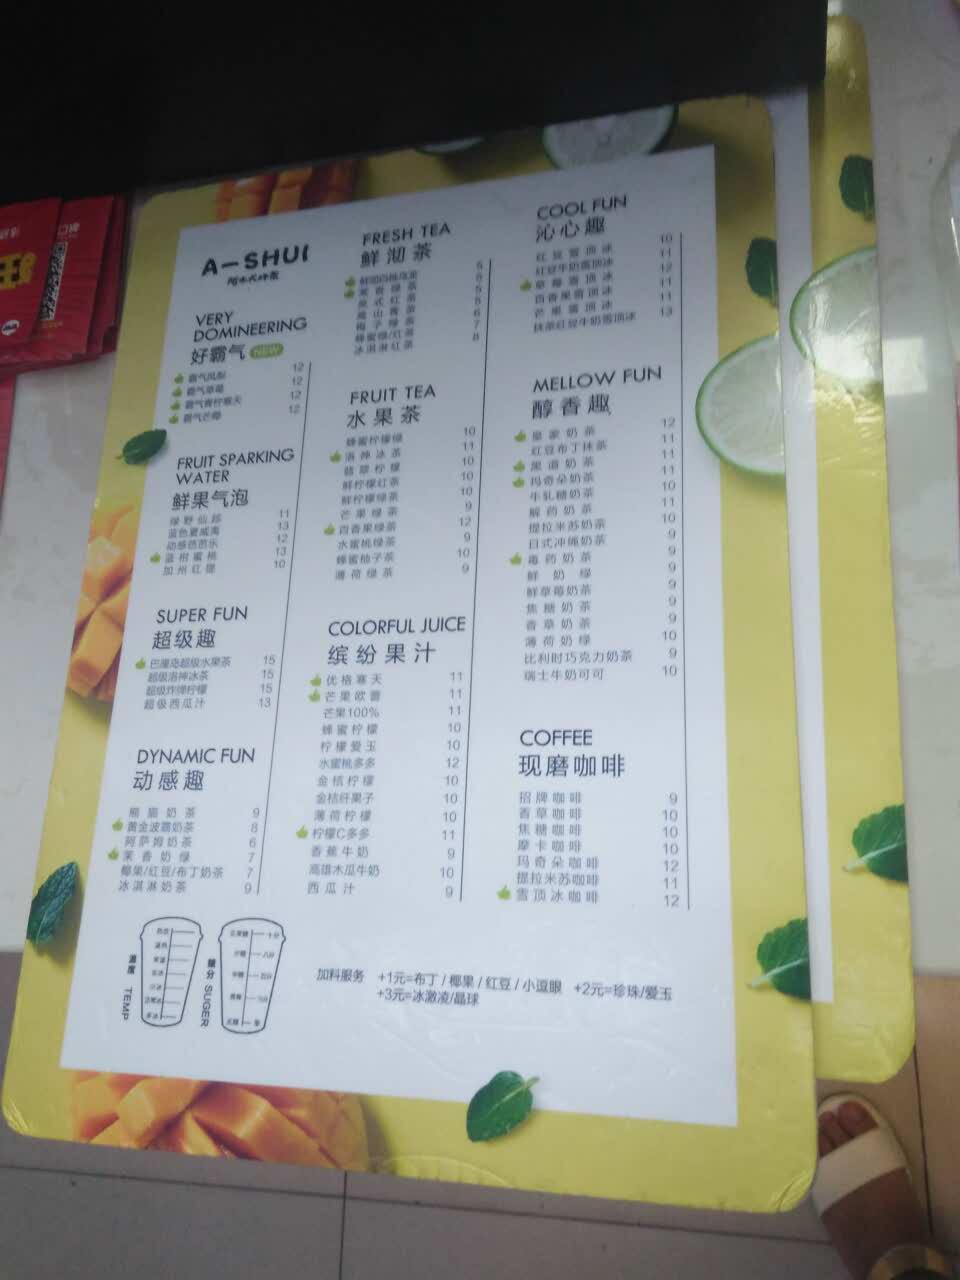 A-SHUI
VERY
DOMINEERING
好霸气 NEW
霸气凤梨 12
霸气草莓 12
霸气青柠寒天 12
霸气芒椰 12
FRUIT SPARKING
WATER
鲜果气泡
绿野仙踪 11
蓝色夏威夷 13
动感芭芭乐 12
蓝柑蜜桃 13
加州红提 10
SUPER FUN
超级趣
巴厘岛超级水果茶 15
超级洛神冰茶 15
超级炸弹柠檬 15
超级西瓜汁 13
DYNAMIC FUN
动感趣
熊猫奶茶 9
黄金波霸奶茶 8
阿萨姆奶茶 6
茉香奶绿 7
椰果/红豆/布丁奶茶 7
冰淇淋奶茶 9
FRESH TEA
鲜沏茶
茉香绿茶 5
英式红茶 5
高山青茶 5
梅子绿茶 6
蜂蜜绿/红茶 7
冰淇淋红茶 8
FRUIT TEA
水果茶
蜂蜜柠檬绿 10
洛神冰茶 11
翡翠柠檬 10
鲜柠檬红茶 10
鲜柠檬绿茶 10
芒果绿茶 9
百香果绿茶 12
水蜜桃绿茶 9
蜂蜜柚子茶 10
薄荷绿茶 9
COLORFUL JUICE
缤纷果汁
优格寒天 11
芒果欧蕾 11
芒果100% 11
蜂蜜柠檬 10
柠檬爱玉 10
水蜜桃多多 12
金桔柠檬 10
金桔纤果子 10
薄荷柠檬 10
柠檬C多多 11
香蕉牛奶 9
高雄木瓜牛奶 10
西瓜汁 9
COOL FUN
沁心趣
红豆雪顶冰 10
红豆牛奶雪顶冰 11
草莓雪顶冰 12
百香果雪顶冰 11
芒果雪顶冰 11
抹茶红豆牛奶雪顶冰 13
MELLOW FUN
醇香趣
皇家奶茶 12
红豆布丁抹茶 11
黑道奶茶 11
玛奇朵奶茶 11
牛轧糖奶茶 10
解药奶茶 11
提拉米苏奶茶 10
日式冲绳奶茶 9
毒药奶茶 9
鲜奶绿 9
鲜草莓奶茶 9
焦糖奶茶 9
香草奶茶 9
薄荷奶绿 10
比利时巧克力奶茶 9
瑞士牛奶可可 10
COFFEE
现磨咖啡
招牌咖啡 9
香草咖啡 10
焦糖咖啡 10
摩卡咖啡 10
玛奇朵咖啡 12
提拉米苏咖啡 11
雪顶冰咖啡 12
温度 TEMP
糖分 SUGER
加料服务 +1元=布丁/椰果/红豆/小逗眼 +2元=珍珠/爱玉
+3元=冰激凌/晶球